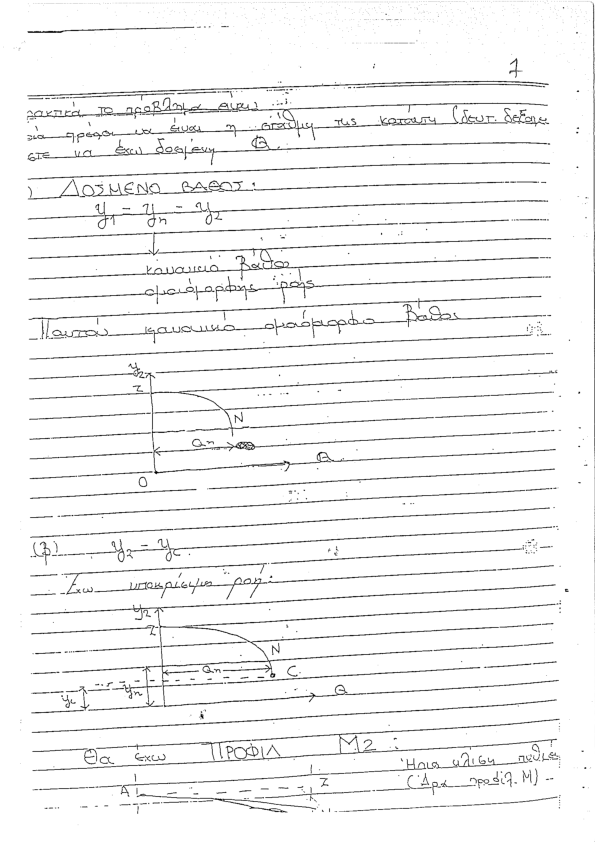 7
ρακτικά το πρόβλημα είναι:
πρέπει να είναι η στάθμη της κατάντη (δευτ. δεξαμ
στε να έχω δοσμένη Q.
) ΔΟΣΜΕΝΟ ΒΑΘΟΣ:
y1 = yn = y2
κανονικό βάθος
ομοιόμορφης ροής
Παντού κανονικό ομοιόμορφο βάθος
y2
Z
N
Qn
Q
O
(β) y2 = yc.
Έχω υποκρίσιμη ροή:
y2
Z
N
Qn
C
yc
yn
Q
Θα έχω ΠΡΟΦΙΛ M2:
Ήπια κλίση πυθμέ
(Άρα προφίλ M)
A
Z